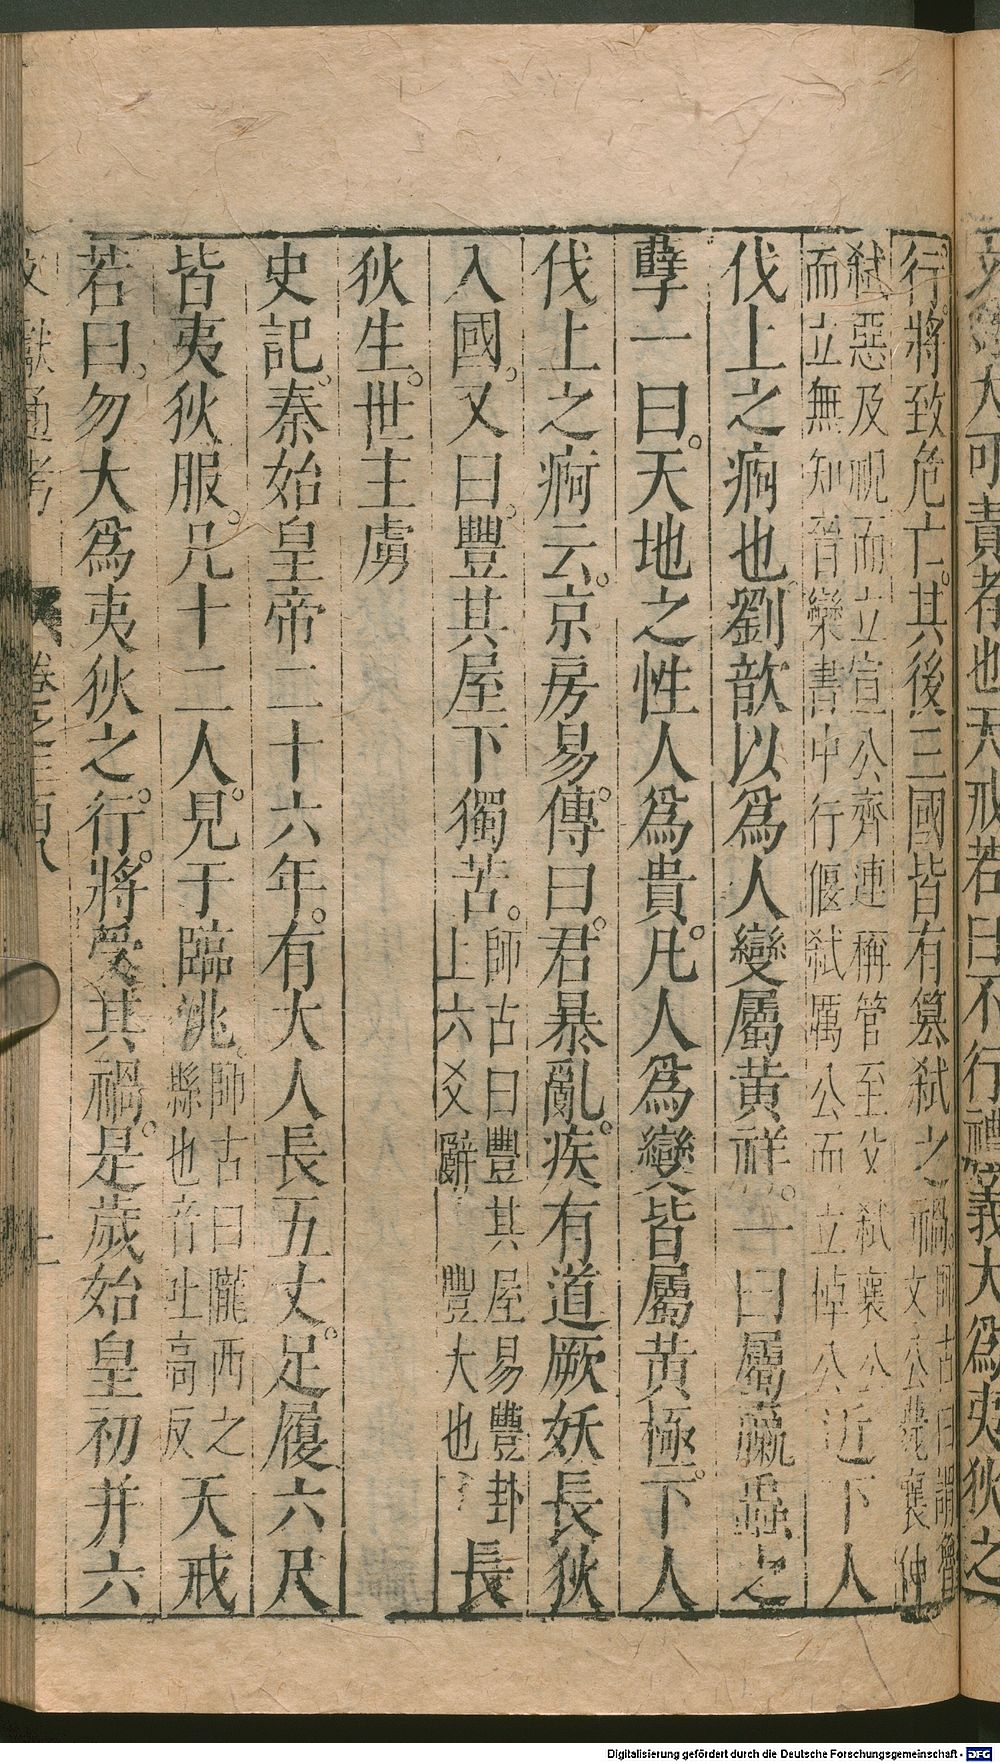 災大可責者也天戒若曰不行禮義大為夷狄之
行將致危亡其後三國皆有篡弑之禍師古曰謂魯文公薨襄仲
弑惡及視而立宣公齊連稱管至父弑襄公
而立無知晉欒書中行偃弑厲公而立悼公近下人
伐上之痾也劉歆以為人變屬黃祥一曰屬蠃蟲之
孽一曰天地之性人為貴凡人為變皆屬黃極下人
伐上之痾云京房易傳曰君暴亂疾有道厥妖長狄
入國又曰豐其屋下獨苦師古曰豐其屋易豐卦
上六爻辭豐大也長
狄生世主虜
史記秦始皇帝二十六年有大人長五丈足履六尺
皆夷狄服凡十二人見于臨洮師古曰隴西之
縣也音吐高反天戒
若曰勿大爲夷狄之行將受其禍是歲始皇初并六
文獻通考 卷之三百八
Digitalisierung gefördert durch die Deutsche Forschungsgemeinschaft - DFG